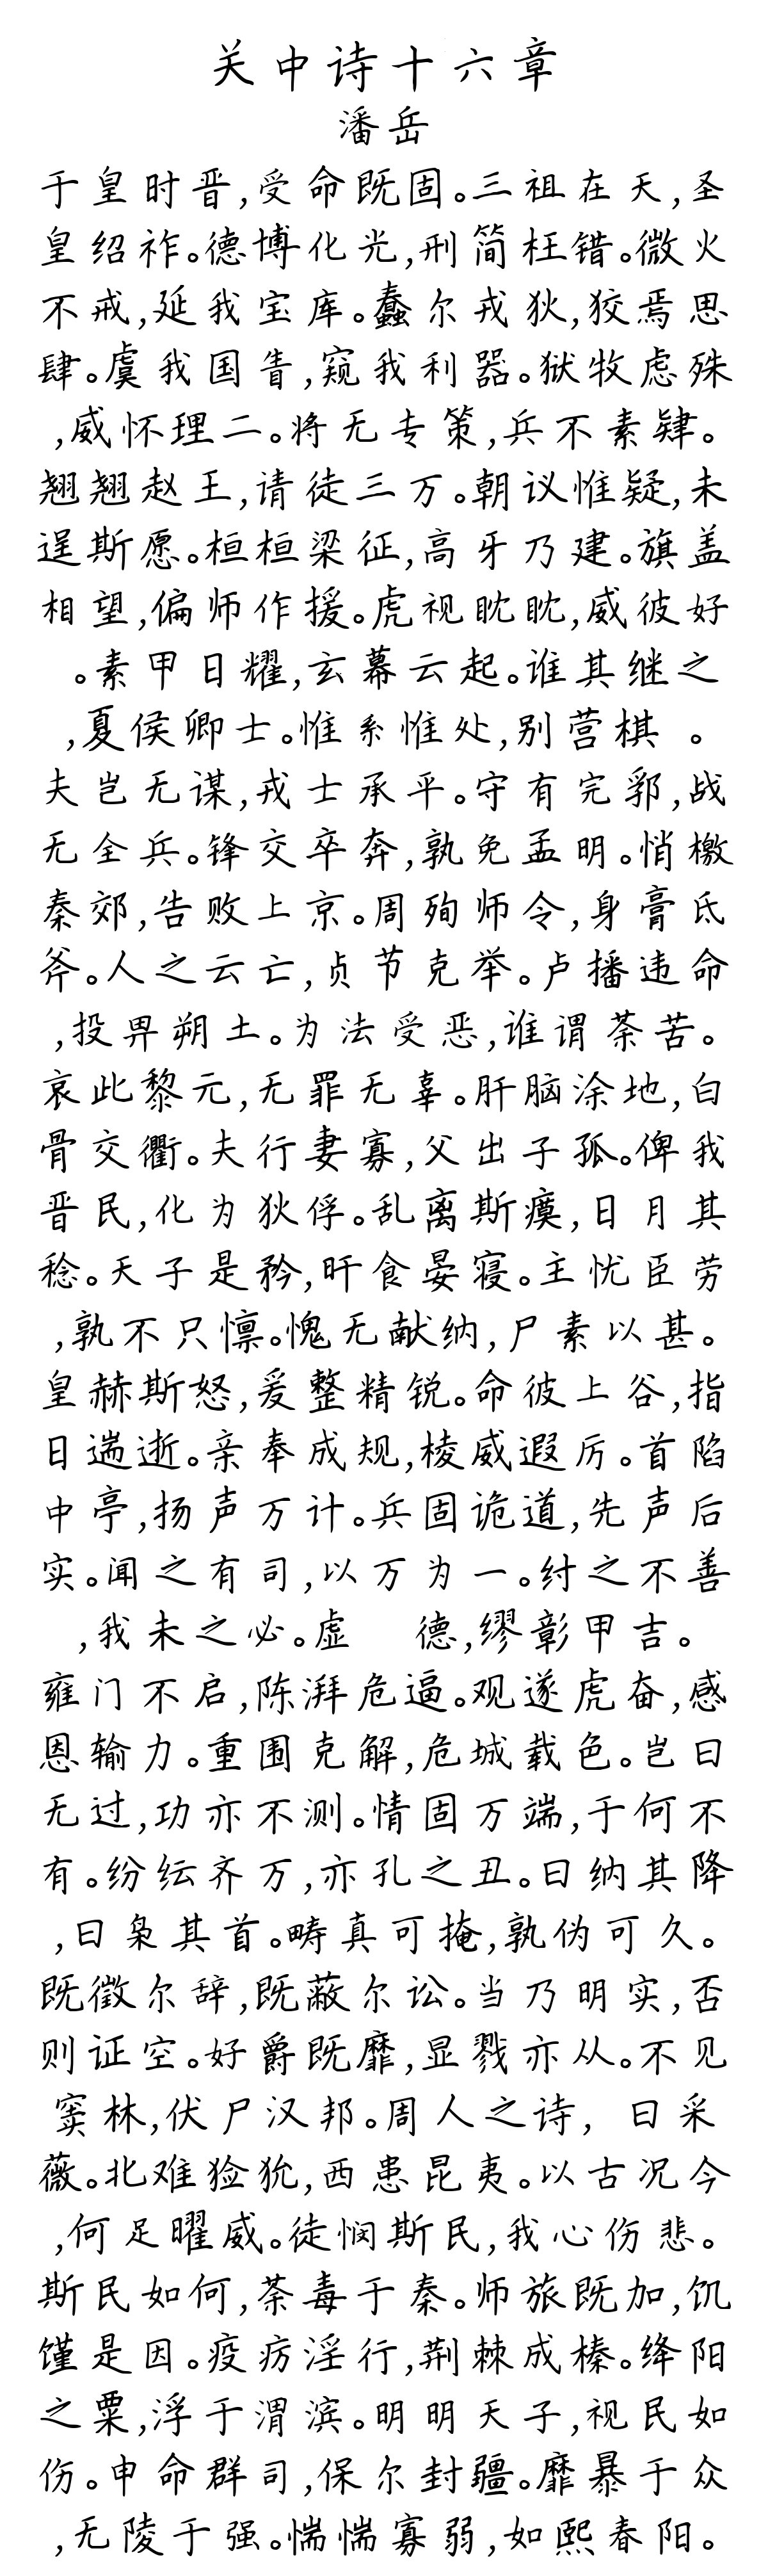 关中诗十六章
潘岳
于皇时晋,受命既固。三祖在天,圣
皇绍祚。德博化光,刑简枉错。微火
不戒,延我宝库。蠢尔戎狄,狡焉思
肆。虞我国眚,窥我利器。狱牧虑殊
,威怀理二。将无专策,兵不素肄。
翘翘赵王,请徒三万。朝议惟疑,未
逞斯愿。桓桓梁征,高牙乃建。旗盖
相望,偏师作援。虎视眈眈,威彼好
。素甲日耀,玄幕云起。谁其继之
,夏侯卿士。惟系惟处,别营棋 。
夫岂无谋,戎士承平。守有完郛,战
无全兵。锋交卒奔,孰免孟明。悄檄
秦郊,告败上京。周殉师令,身膏氐
斧。人之云亡,贞节克举。卢播违命
,投畀朔土。为法受恶,谁谓荼苦。
哀此黎元,无罪无辜。肝脑涂地,白
骨交衢。夫行妻寡,父出子孤。俾我
晋民,化为狄俘。乱离斯瘼,日月其
稔。天子是矜,旰食晏寝。主忧臣劳
,孰不只懔。愧无献纳,尸素以甚。
皇赫斯怒,爰整精锐。命彼上谷,指
日遄逝。亲奉成规,棱威遐厉。首陷
中亭,扬声万计。兵固诡道,先声后
实。闻之有司,以万为一。纣之不善
,我未之必。虚 德,缪彰甲吉。
雍门不启,陈湃危逼。观遂虎奋,感
恩输力。重围克解,危城载色。岂曰
无过,功亦不测。情固万端,于何不
有。纷纭齐万,亦孔之丑。曰纳其降
,曰枭其首。畴真可掩,孰伪可久。
既徵尔辞,既蔽尔讼。当乃明实,否
则证空。好爵既靡,显戮亦从。不见
窦林,伏尸汉邦。周人之诗, 曰采
薇。北难猃狁,西患昆夷。以古况今
,何足曜威。徒悯斯民,我心伤悲。
斯民如何,荼毒于秦。师旅既加,饥
馑是因。疫疠淫行,荆棘成榛。绛阳
之粟,浮于渭滨。明明天子,视民如
伤。申命群司,保尔封疆。靡暴于众
,无陵于强。惴惴寡弱,如熙春阳。